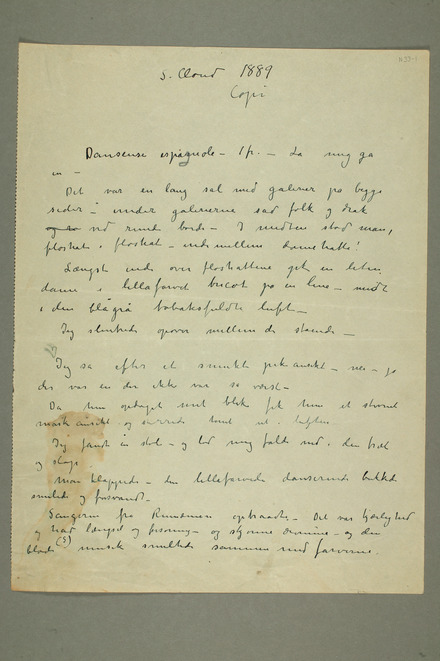 S. Cloud 1889
Copi
Danseuse espagnole – 1 fr. – La mig gå
in –
Det var en lang sal med galerier på begge
sider – under galerierne sad folk og drak
ved runde borde – I midten stod man,
floshat i floshat – ind imellem damehatte!
Længst inde over floshattene gik en liten
dame i lillafarved tricot på en line – midt
i den blågrå tobaksfyldte luft –
Jeg slentrede opover mellem de stående –
Jeg så efter et smukt pikeansikt – nei – jo
der var en der ikke var så værst –
Da hun opdaget mit blik fik hun et stivnet
maskeansikt og stirrede tomt ut i luften
Jeg fandt en stol – og lod mig falde ned i den træt
og slap
Man klappede – den lillafarvede danserinde bukket
smilede og forsvandt –
Sangerne fra Rumænien optraadte – Det var kjærlighed
og had længsel og forsoning – og skjønne drømme – og den
bløde musik smeltede sammen med farverne.
(S)